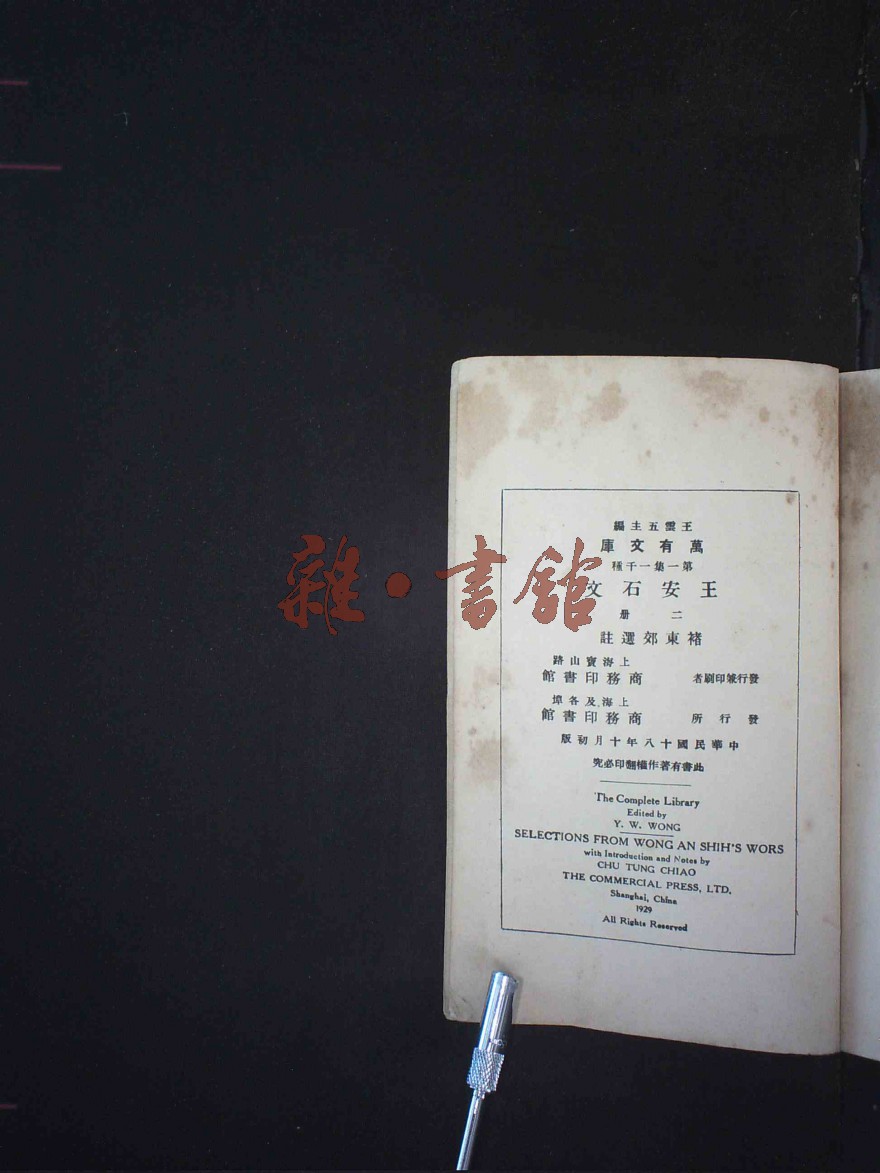 王雲五主編
萬有文庫
第一集一千種
王安石文
二册
褚東郊選註
上海寶山路
發行兼印刷者 商務印書館
上海及各埠
發行所 商務印書館
中華民國十八年十月初版
此書有著作權翻印必究
The Complete Library
Edited by
Y. W. WONG
SELECTIONS FROM WONG AN SHIH'S WORS
with Introduction and Notes by
CHU TUNG CHIAO
THE COMMERCIAL PRESS, LTD.
Shanghai, China
1929
All Rights Reserved
雜·書館